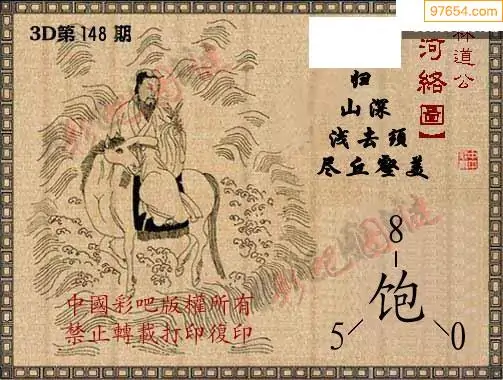 97654.com
3D第148期
林道公
河絡圖】
归
山深
浅去頭
尽丘壑美
彩吧图谜
彩吧图谜
8
饱
5
0
中國彩吧版權所有
禁止轉載打印復印